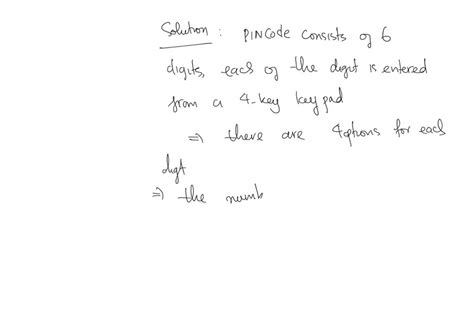 Solution : PINCode consists of 6
digits, each of the digit is entered
from a 4-key keypad
⇒ there are 4 options for each
digit
⇒ the numb